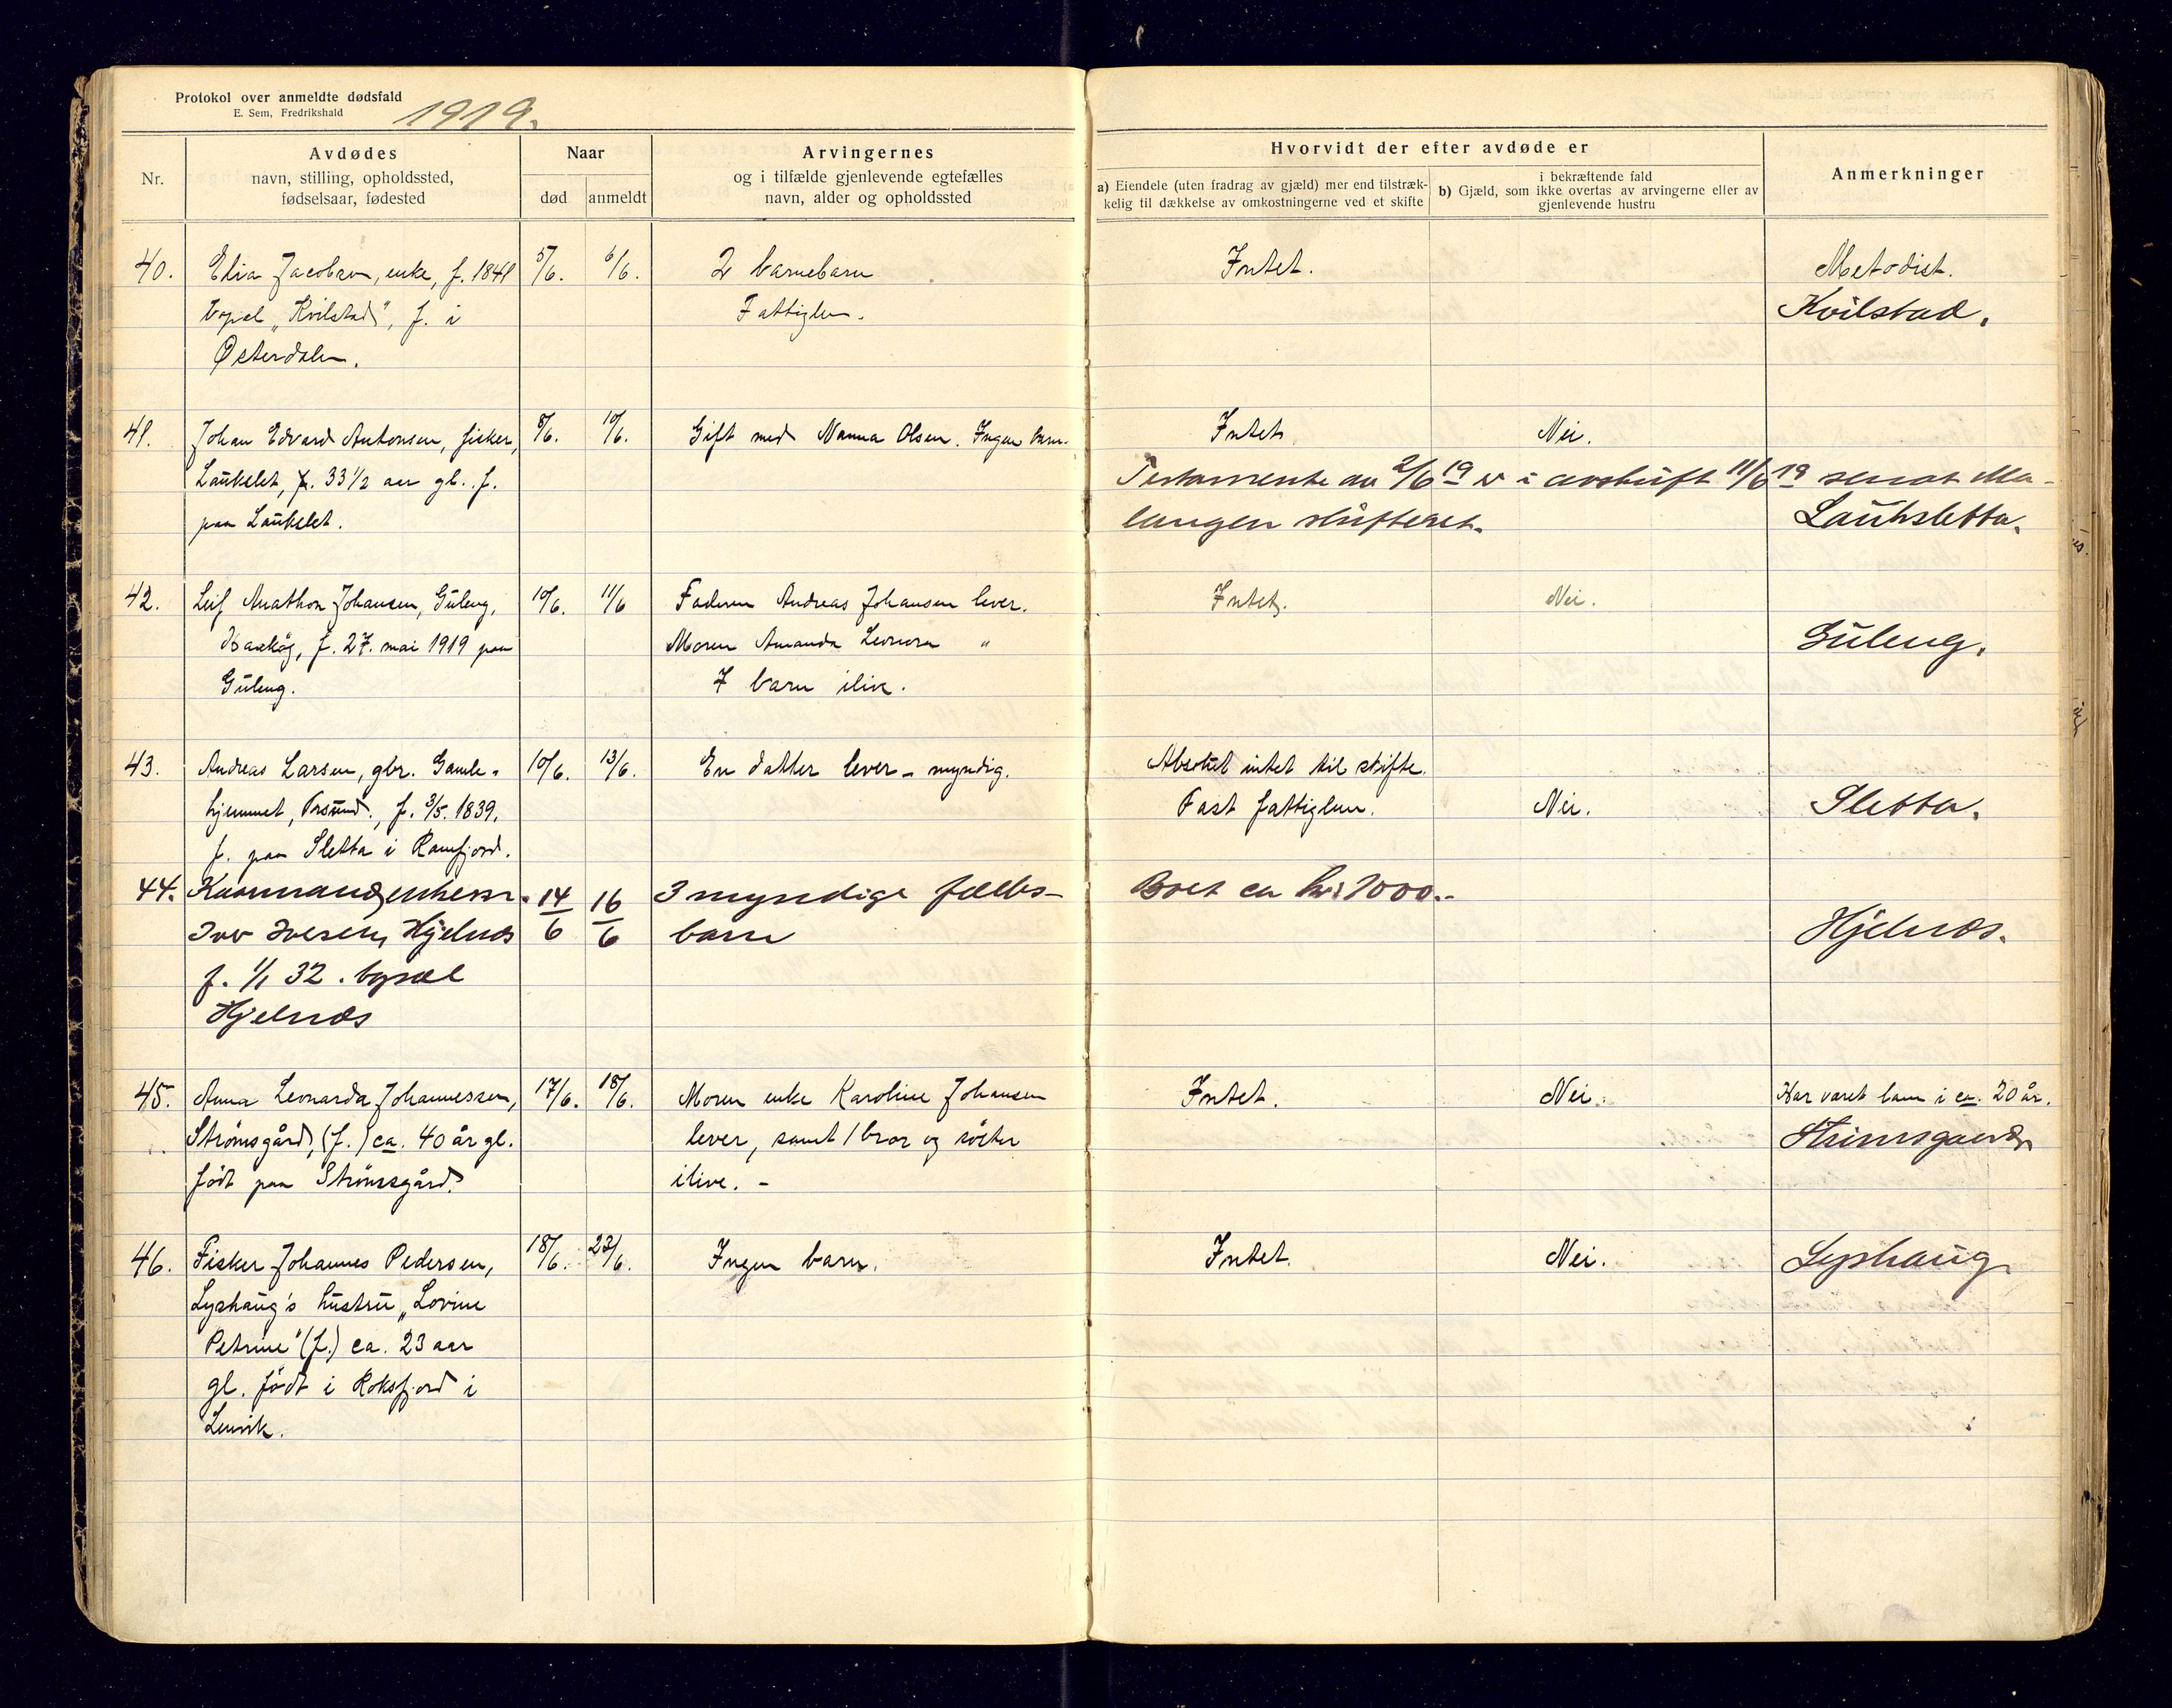 Protokol over anmeldte dødsfald
E. Sem, Fredrikshald
1919.
Nr.
Avdødes
navn, stilling, opholdssted,
fødselsaar, fødested
Naar
død anmeldt
Arvingernes
og i tilfælde gjenlevende egtefælles
navn, alder og opholdssted
Hvorvidt der efter avdøde er
a) Eiendele (uten fradrag av gjæld) mer end tilstræk-
kelig til dækkelse av omkostningerne ved et skifte
i bekræftende fald
b) Gjæld, som ikke overtas av arvingerne eller av
gjenlevende hustru
Anmerkninger
40. Jacobsen, enke, f. 1841 5/6. 6/6. 2 barnebarn Intet. Metodist.
bopæl "Kvilstad", f. i Fattiglem. Kvilstad.
Østerdalen.
41. Johan Edvard Antonsen, fisker, 8/6. 10/6. Gift med Nanna Olsen. Ingen barn. Intet. Nei.
Laukslet, f. 33 1/2 aar gl. f. Testamente av 2/6 19 er i avskrift 11/6 19 sendt Ma-
paa Laukslet. langen skifteret. Lauksletta.
42. Leif Johansen, Guleng, 10/6. 11/6 Faderen Andreas Johansen lever. Intet. Nei.
f. 27. mai 1919 paa Moren Amanda Leonora " Guleng.
Guleng. 7 barn ilive.
43. Andreas Larsen, gbr. Gamle- 10/6. 13/6. En datter lever - myndig. Absolut intet til skifte.
hjemmet, Trsund., f. 3/5. 1839. Fast fattiglem. Nei. Sletta.
f. paa Sletta i Ramfjord.
44. Kaarmand, enkem. 14/6 16/6 3 myndige fælles- Boet ca kr. 1000.-
Iver Iversen, Hjelnæs barn Hjelnæs.
f. 1/1 32. bopæl
Hjelnæs
45. Anna Leonarda Johannessen, 17/6. 18/6. Moren enke Karoline Johansen Intet. Nei. Har været lam i ca. 20 år.
Strømsgård, (f.) ca. 40 år gl. lever, samt 1 bror og søster Strømsgaard.
født paa Strømsgård. ilive. -
46. Fisker Johannes Pedersen, 18/6. 23/6. Ingen barn. Intet. Nei. Lyshaug
Lyshaug's hustru "Lovine
Petrine" (f.) ca. 23 aar
gl. født i Roksfjord i
Lenvik.